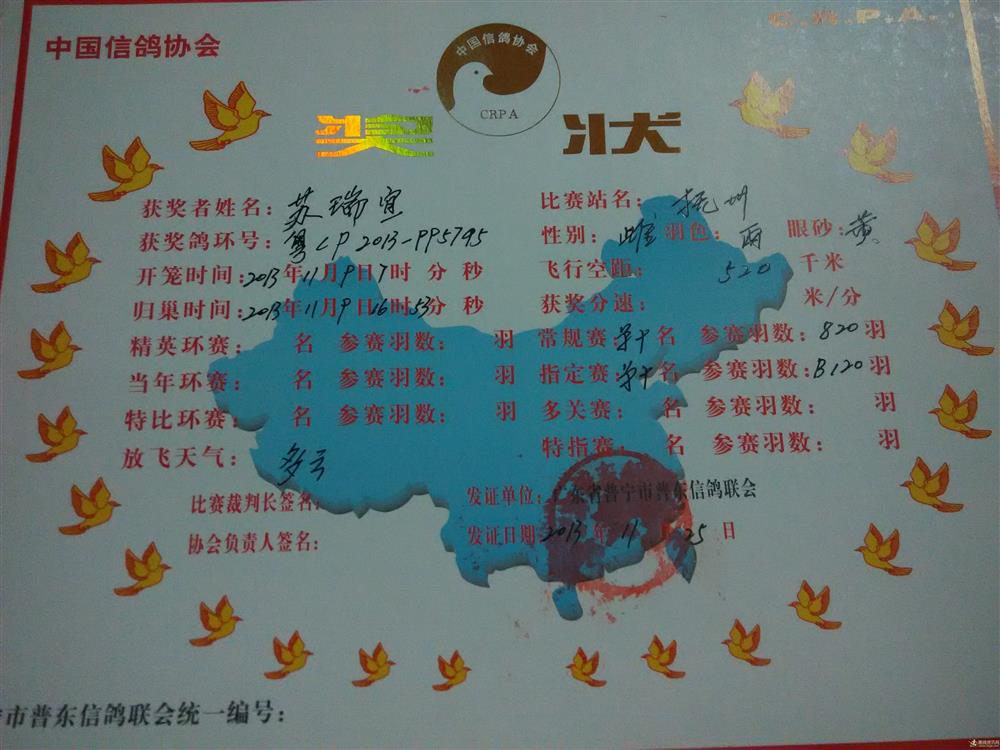 C.R.P.A.
中国信鸽协会
中国信鸽协会
CRPA
奖 状
获奖者姓名：苏瑞宜 比赛站名：抚州
获奖鸽环号：粤CP2013-PP5795 性别：雌 羽色：雨 眼砂：黄
开笼时间：2013年11月9日7时 分 秒 飞行空距：520 千米
归巢时间：2013年11月9日16时53分 秒 获奖分速： 米/分
精英环赛： 名 参赛羽数： 羽 常规赛：第十名 参赛羽数：820羽
当年环赛： 名 参赛羽数： 羽 指定赛：第十名 参赛羽数：B120羽
特比环赛： 名 参赛羽数： 羽 多关赛： 名 参赛羽数： 羽
放飞天气：多云 特指赛： 名 参赛羽数： 羽
比赛裁判长签名： 发证单位：广东省普宁市普东信鸽联会
协会负责人签名： 发证日期：2013年11月25日
市普东信鸽联会统一编号：